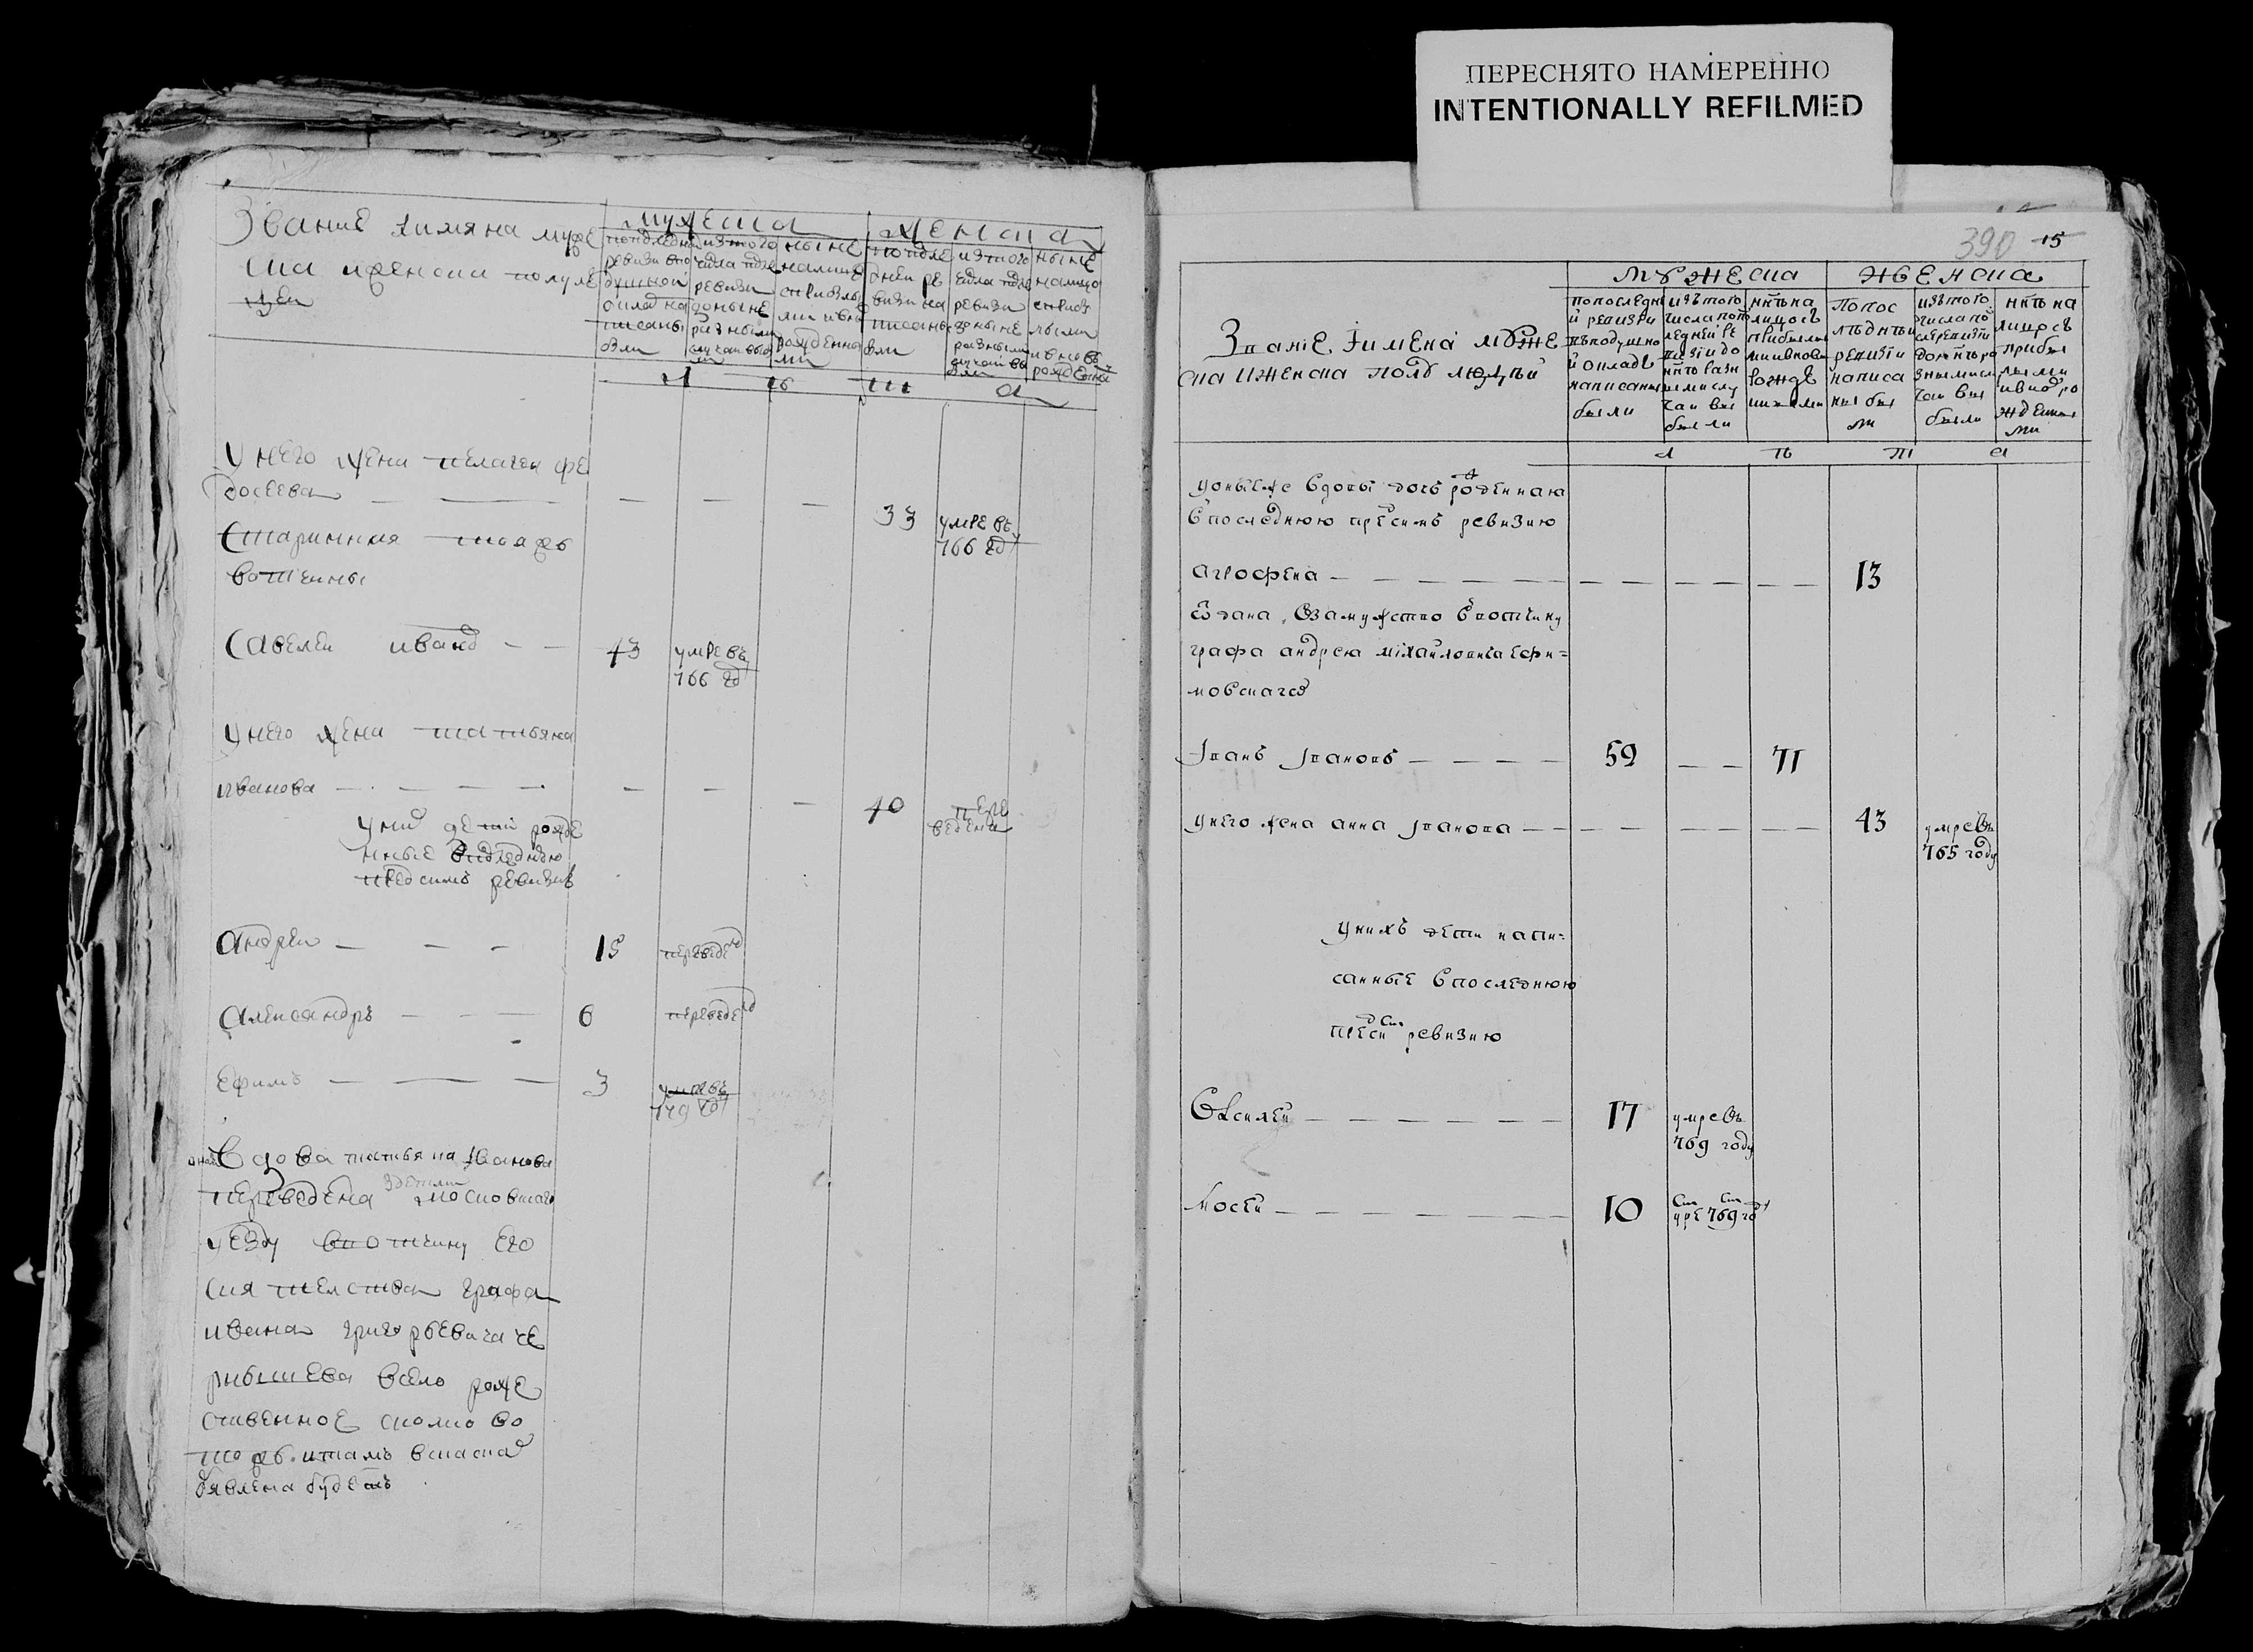 ПЕРЕСНЯТО НАМЕРЕННО
INTENTIONALLY REFILMED
Звание и имяна муже
ска и женска полу лю
дей
мужеска
женска
последней
ревизи
душной
оклад на
писаны
были
из того
числа после
ревизи
до ныне
разными
случаи выб
ли
ныне
налице
с прибылы
ми и вно
рожденны
ми
по после
дней ре
визи на
писаны
были
из того
числа после
ревизи
до ныне
разными
случаи вы
были
ныне
налицо
с прибы
лыми
и вновь
рожденны
л ѣ т а
у него жена пелагея фе
досеева — — — — — — 33 умре въ
766 году
старинныя тояжъ
вотчины
савелеи иванов — — 43 умре въ
766 году
у него жена татьяна
иванова — — — — — — — 40 пере
ведена
у них дети рожде
нные в последнюю
пред симъ ревизию
андреи — — — 15 переведен
александръ — — — 6 переведен
ефимъ — — — 3 умре въ
779 году
оная вдова татьяна Иванова
переведена з детми московскаго
уезду в вотчину его
сиятелства графа
ивана григорьевича че
рнышева в село роже
ственное сколково
тожъ и тамъ в скаске
объявлена будетъ
390 15
мꙋжеска
женска
Званіе Имена мꙋже
ска и женска полꙋ людѣй
по последне
й ревизіи
въ подушно
й окладъ
написаны
были
изъ того
числа по по
следней ре
визіи до
нѣ разн
ыми слу
чаи вы
были
нѣ на
лицо съ
прибылы
ми и вновь
рожде
нными
По пос
лѣднѣи
ревизіи
написа
ны бы
ли
изъ того
числа по
сле ревизіи
до нѣ ра
зными слу
чаи вы
были
нѣ на
лицо съ
прибы
лыми
и вновь ро
жденны
ми
л ѣ т а
у оныеже вдовы дочь рожденная
в последнюю пред симъ ревизию
агрофена — — — — — — — — — 13
выдана в замужство в вотчину
графа андрея міхайловича ефи=
мовскаго
Іванъ Івановъ — — — — 59 — — 71
у него жена анна Іванова — — — — — — — 43 умре въ
765 году
у нихъ дети напи=
санные в последнюю
пред сим ревизию
Василей — — — — — — 17 умре въ
769 году
мосей — — — — — — — 10 умре 769 году